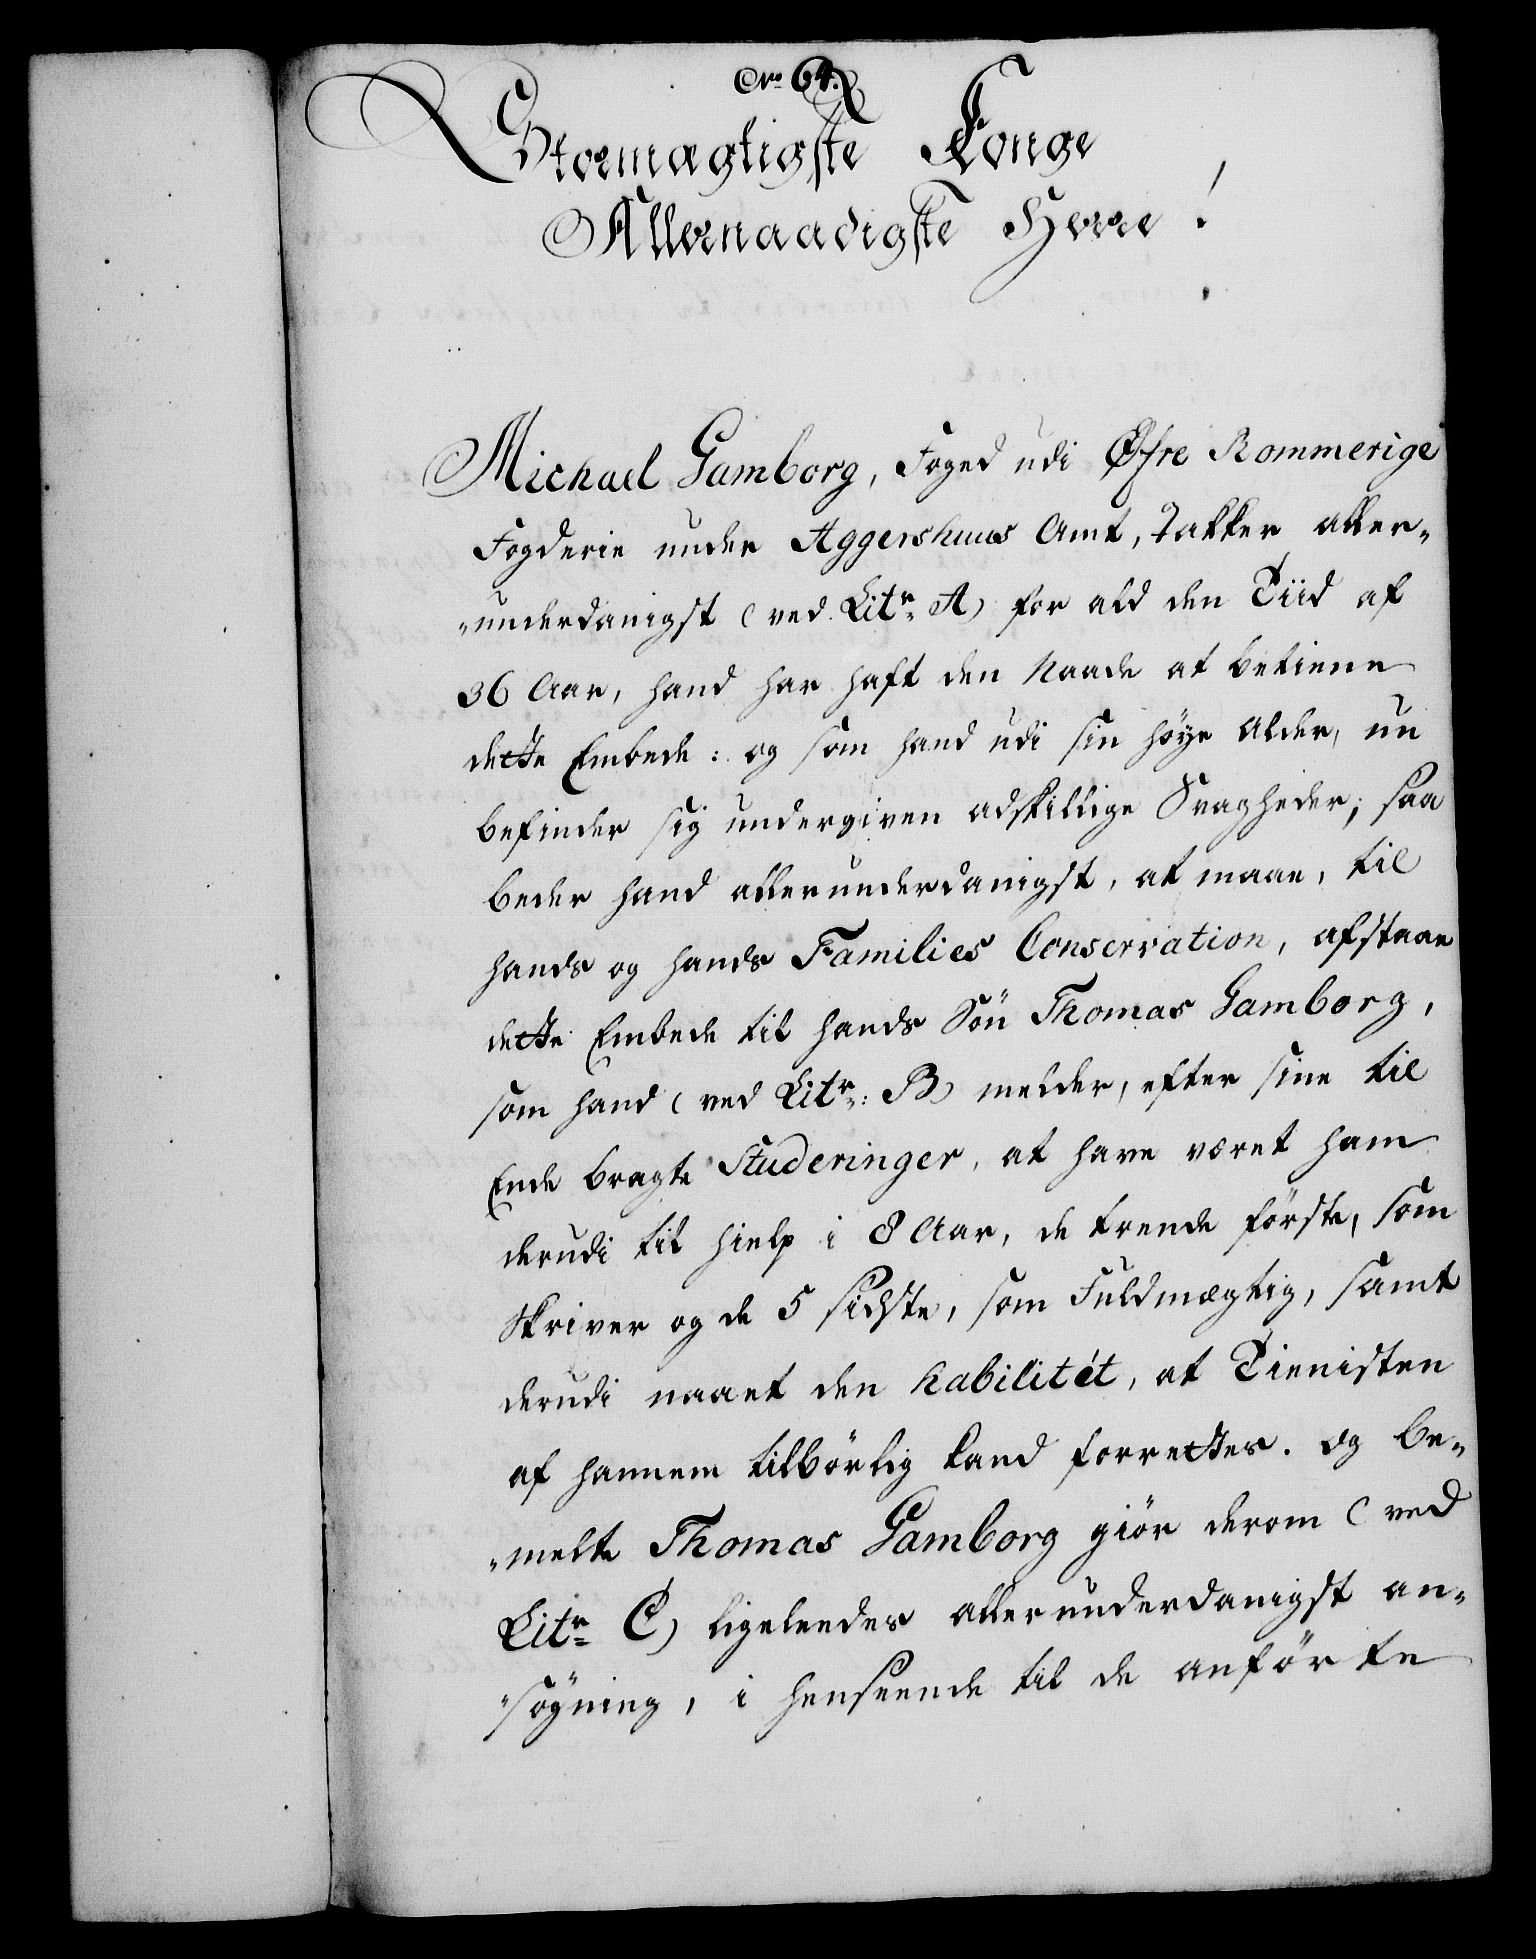 No. 64.
Stormægtigste Konge
Allernaadigste Herre!
Michael Gamborg, Foged udi Øfre Rommerige
Fogderie under Aggershuus Amt, Takker aller-
"underdanigst (ved Litr. A) for ald den Tiid af
36 Aar, hand har haft den Naade at betiene
dette Embede: og som hand udi sin høye Alder, nu
befinder sig undergiven adskillige Svagheder; saa
beder hand allerunderdanigst, at maae, til
hands og hands Families Conservation, afstaae
dette Embede til hands Søn Thomas Gamborg,
som hand (ved Litr: B) melder, efter sine til
Ende bragte Studeringer, at have været ham
derudi til hielp i 8 Aar, de trende første, som
Skriver og de 5 sidste, som Fuldmægtig, samt
derudi naaet den habilitét, at Tienisten
af hannem tilbørlig kand forrettes. Og be-
"melte Thomas Gamborg giør derom (ved
Litr C) ligeleedes allerunderdanigst an-
"søgning, i henseende til de anførte